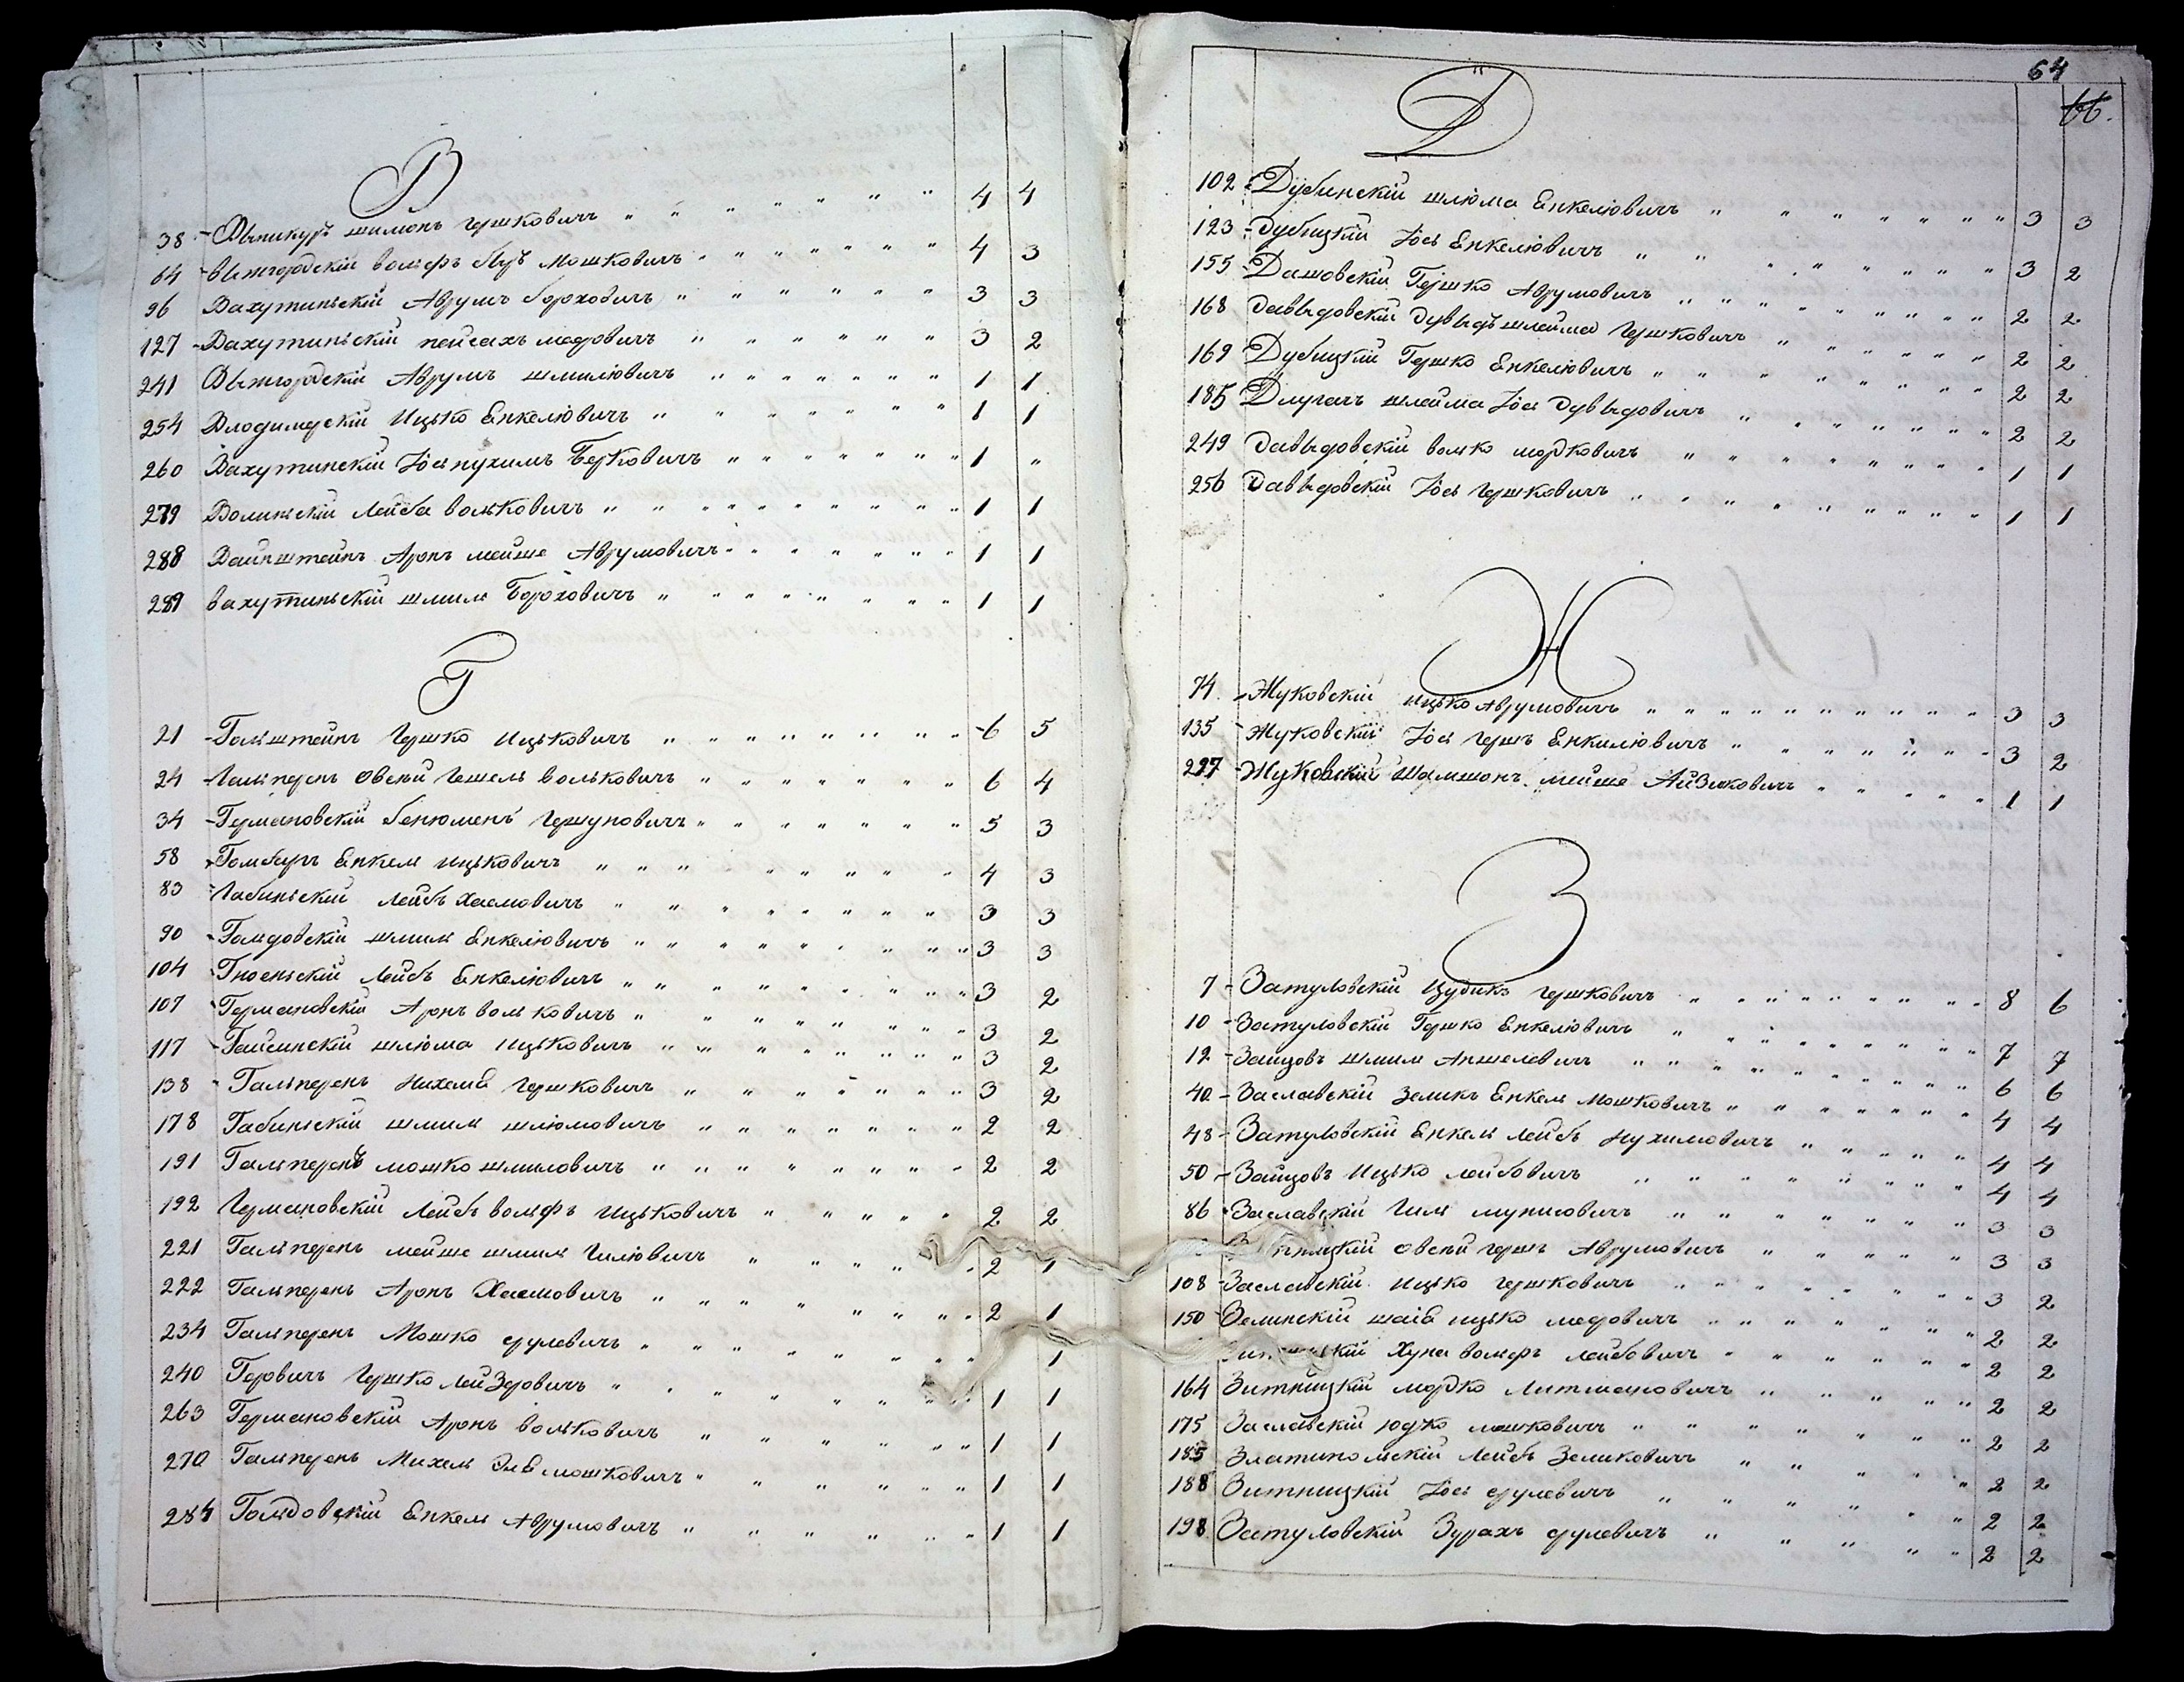 В
38 Виникуръ шимонъ Гершковичъ " " " " " " " 4 4
64 Вышгородскій вольфъ Беръ Мошковичъ " " " " " " " 4 3
96 Вахутинскій Аврумъ Бороховичъ " " " " " " 3 3
127 Вахутинскій пейсахъ меровичъ " " " " " " 3 2
241 Вышгородскій Аврумъ шмилювичъ " " " " " " " 1 1
254 Владимерскій Ицько Енкелювичъ " " " " " " " 1 1
260 Вахутинскій Іосьнухимъ Берковичъ " " " " " " " 1 "
279 Волинскій Лейба вольковичъ " " " " " " " " " 1 1
288 Вайнштейнъ Аронъ мейше Аврумовичъ " " " " " " " 1 1
289 вахутинскій шмилъ Бороховичъ " " " " " " " " 1 1
Г
21 Гольштейнъ Гершко Ицьковичъ " " " " " " " " 6 5
24 Гальперенъ Овсѣй Гешель вольковичъ " " " " " " " 6 4
34 Германовскій бенюменъ Гершуновичъ " " " " " " " 5 3
58 Енкель ицьковичъ " " " " " " " " 4 3
83 Габинскій Лейбъ Хаимовичъ " " " " " " " " 3 3
90 Голдовскій шмилъ Енкелювичъ " " " " " " " " " 3 3
104 Гноенскій Лейбъ Енкелювичъ " " " " " " " " " 3 2
107 Германовскій Аронъ вольковичъ " " " " " " " " 3 2
117 Гайсинскій шлюма Ицьковичъ " " " " " " " " 3 2
138 Гальперенъ Нахемъ Гершковичъ " " " " " " " " 3 2
178 Габинскій шмилъ шлюмовичъ " " " " " " " " 2 2
191 Гальперенъ мошко шмиловичъ " " " " " " " " 2 2
192 Германовскій Лейбъ вольфъ ицьковичъ " " " " " 2 2
221 Гальперенъ мейше шмилъ Гилювичъ " " " " " 2 1
222 Гальперенъ Аронъ Хаимовичъ " " " " " " " 2 1
234 Гальперенъ Мошко срулевичъ " " " " " " " 1
240 Геровичъ Гершко Лейзеровичъ " " " " " " " 1 1
263 Германовскій Аронъ вольковичъ " " " " " " 1 1
270 Гальперенъ Михель Эль мошковичъ " " " " " " 1 1
284 Голдовскій Енкель Аврумовичъ " " " " " " 1 1
64
66.
Д
102 Дубинскій шлюма Енкелювичъ " " " " " " " " 3 3
123 Дубицкій Іось Енкелювичъ " " " " " " " " 3 2
155 Дашовскій Гершко Аврумовичъ " " " " " " " " 2 2
168 Давыдовскій Дувыдъ шлейма Гершковичъ " " " " " " 2 2
169 Дубицкій Гершко Енкелювичъ " " " " " " " " 2 2
185 Длугачъ шлейма Іось Дувыдовичъ " " " " " " " 2 2
249 Давыдовскій волько мордковичъ " " " " " " " " 1 1
256 Давыдовскій Іось Гершковичъ " " " " " " " " 1 1
Ж
74 Жуковскій ицько Аврумовичъ " " " " " " " " " " 3 3
135 Жуковскій Іось Гершъ Енкилювичъ " " " " " " " 3 2
227 Жуковскій Шамшонъ мейше Айзиковичъ " " " " " 1 1
З
7 Затуловскій Гершковичъ " " " " " " " " " 8 6
10 Затуловскій Гершко Енкелювичъ " " " " " " " " 7 7
12 Зайцовъ шмилъ Аншелевичъ " " " " " " " " " 6 6
40 Заславскій Зеликъ Енкель Мошковичъ " " " " " " " 4 4
48 Затуловскій Енкель Лейбъ Нухимовичъ " " " " " " 4 4
50 Зайцовъ Ицько Лейбовичъ " " " " " " " " 4 4
86 Заславскій Гиль " " " " " " " " 3 3
овсѣй гершъ Аврумовичъ " " " " " " 3 3
108 Заславскій Ицько Гершковичъ " " " " " " " 3 2
150 Зелинскій шаіа ицько меровичъ " " " " " " " 2 2
Хуна вольфъ Лейбовичъ " " " " " " " 2 2
164 Зитницкій мордко Литмановичъ " " " " " " 2 2
175 Заславскій юдко мошковичъ " " " " " " " 2 2
185 Златипольскій Лейбъ Зеликовичъ " " " " " 2 2
188 Зитницкій Іось срулевичъ " " " " " " 2 2
198 Затуловскій Зурахъ срулевичъ " " " " " 2 2